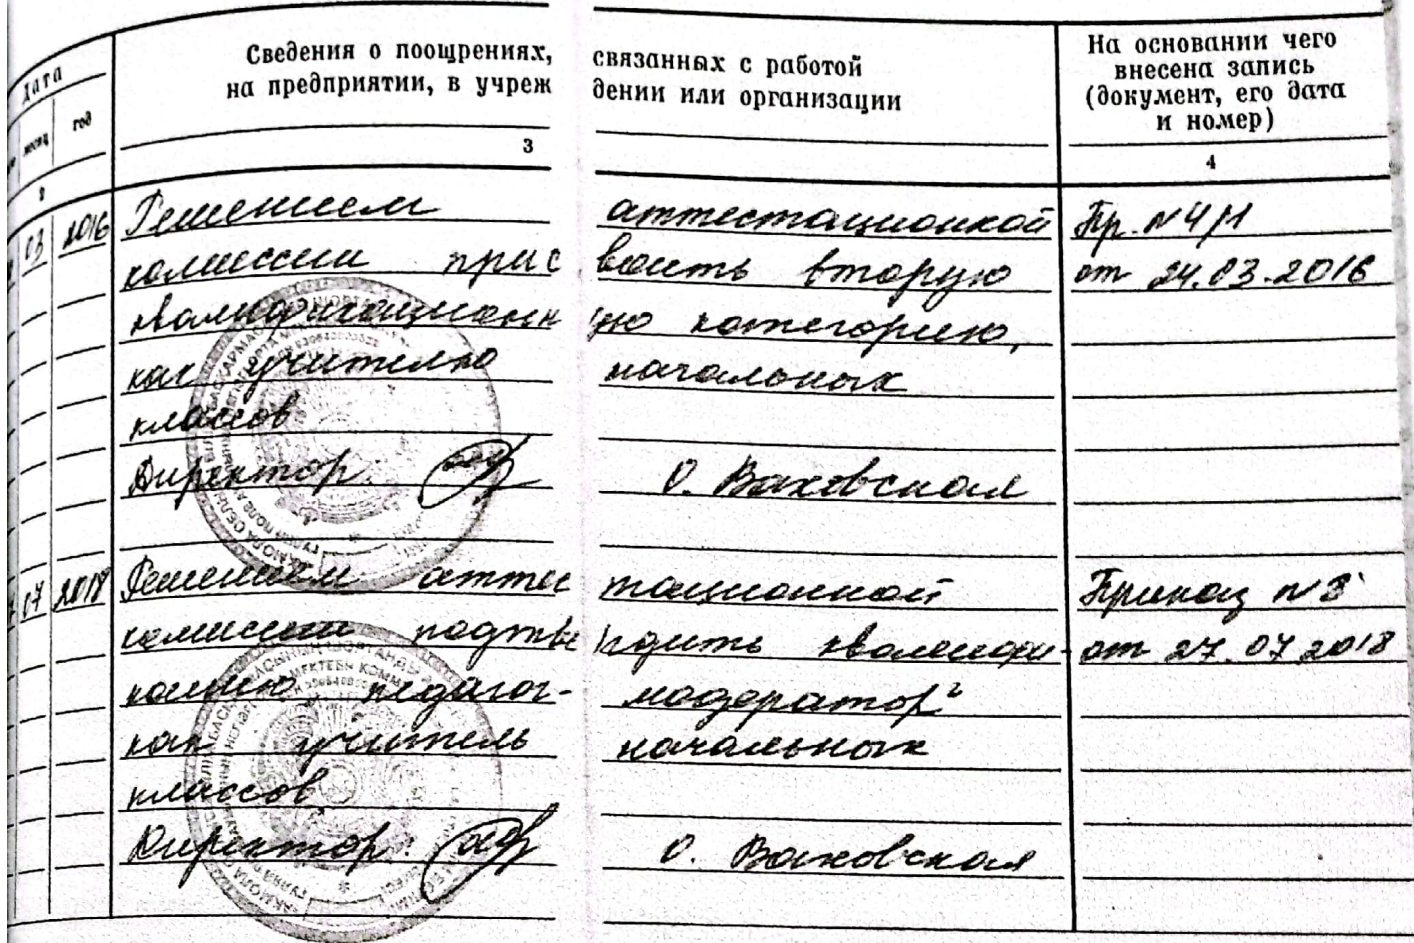 Дата
месяц
год
Сведения о поощрениях, связанных с работой
на предприятии, в учреждении или организации
На основании чего
внесена запись
(документ, его дата
и номер)
2
3
4
03 2016 Решением аттестационной Пр. №4/1
комиссии присвоить вторую от 24.03.2016
квалификационную категорию,
как учителю начальных
классов
Директор. О. Ваховская
07 2018 Решением аттестационной Приказ №8
комиссии подтвердить квалифи- от 27.07.2018
кацию педагог- модератор
как учитель начальных
классов
Директор. О. Ваховская